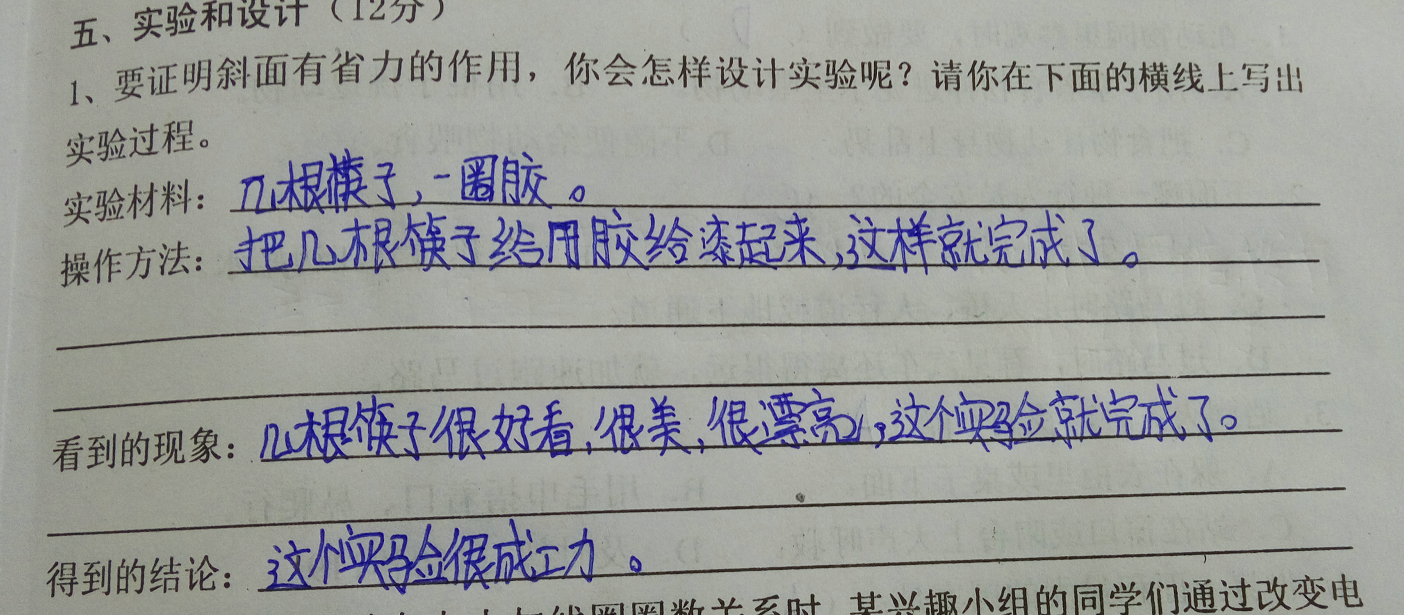 五、实验和设计（12分）
1、要证明斜面有省力的作用，你会怎样设计实验呢？请你在下面的横线上写出
实验过程。
实验材料：几根筷子，一圈胶。
操作方法：把几根筷子给用胶给漆起来，这样就完成了。
看到的现象：几根筷子很好看，很美，很漂亮，这个实验就完成了。
得到的结论：这个实验很成工力。
线圈圈数关系时，某兴趣小组的同学们通过改变电